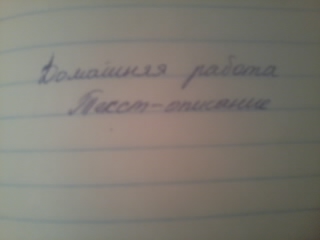 Домашняя работа
Текст-описание